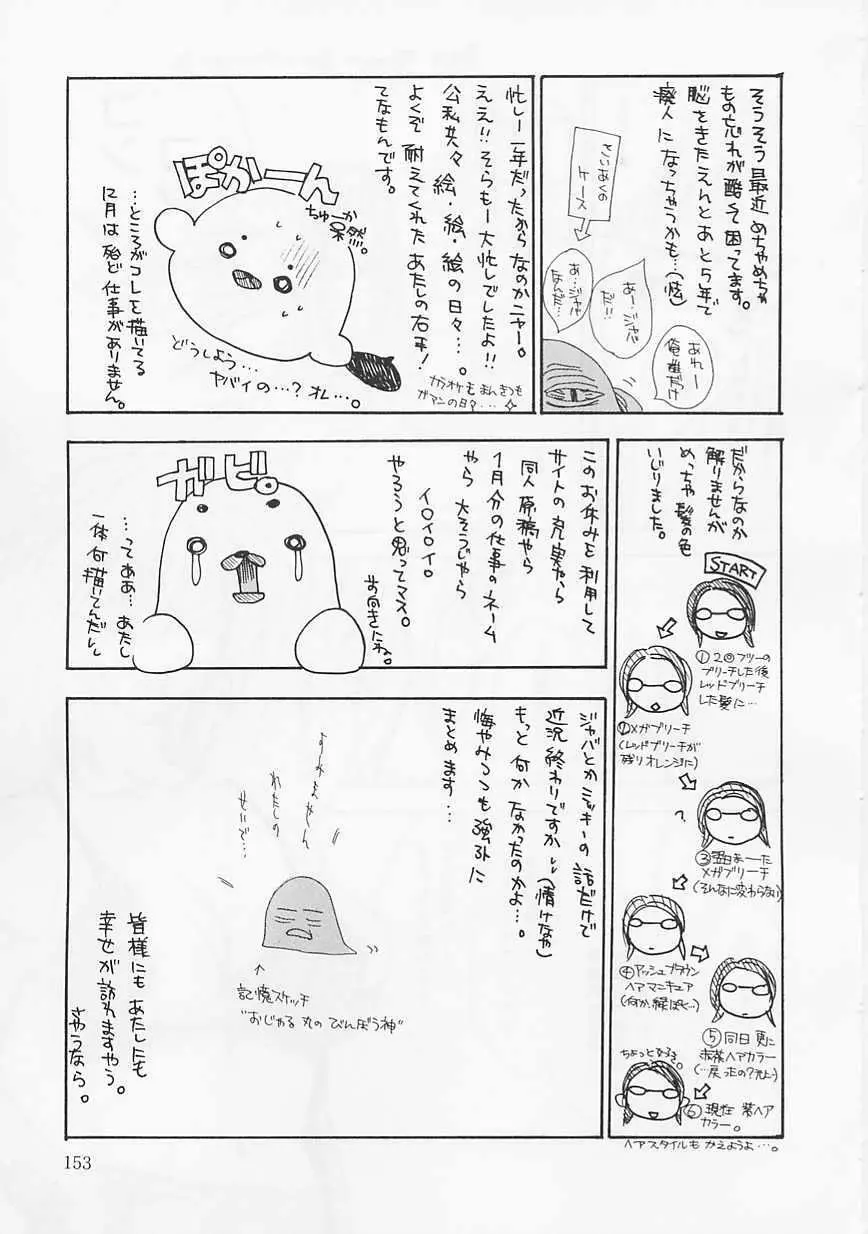 そうそう最近めちゃめちゃ
もの忘れが酷くて困ってます。
脳をきたえんとあと5年で
廃人になっちゃうかも…(怯)
といいあくの
ケース
あれー
俺誰だっけ
あー…ジャバ
だ!!
あ…ジャバ
なんだ…
忙しー一年だったからなのかニャー。
ええ!!そらもー大忙しでしたよ!!
公私共々絵・絵・絵の日々…。
よくぞ耐えてくれたあたしの右手!
てなもんです。
カラオケもまんきつも
ガマンの日々…
ぽかーん
ちゅーか呆然。
どうしよう…
ヤバイの…?オレ…。
…ところがコレを描いてる
12月は殆ど仕事がありません。
だからなのか
解りませんが
めっちゃ髪の色
いじりました。
START
①2回フツーの
ブリーチした後
レッドブリーチ
した髪に…
②メガブリーチ
(レッドブリーチが
残りオレンジに)
?
③翌日まーた
メガブリーチ
(そんなに変わらない)
④アッシュブラウン
ヘアマニキュア
(何か、緑ぽく…)
⑤同日更に
赤茶ヘアカラー
(…戻ったの?元に…)
ちょっと好き。
⑥現在紫ヘア
カラー。
ヘアスタイルもかえようよ…。
このお休みを利用して
サイトの充実やら
同人原稿やら
1月分の仕事のネーム
やら大そうじやら
イロイロイロ
やろうと思ってマス。
前向きにね。
ガビ。
…ってああ…あたし
一体何描いてんだ…
ジャバとかミッキーの話だけで
近況終わりですか…(情けなや)
もっと何かなかったのかよ…。
悔やみつつも強引に
まとめます…
すみません
わたしの
せいで…
↑
記憶スケッチ
"おじゃる丸のびんぼう神"
皆様にもあたしにも
幸せが訪れますやう。
さやうなら。
153